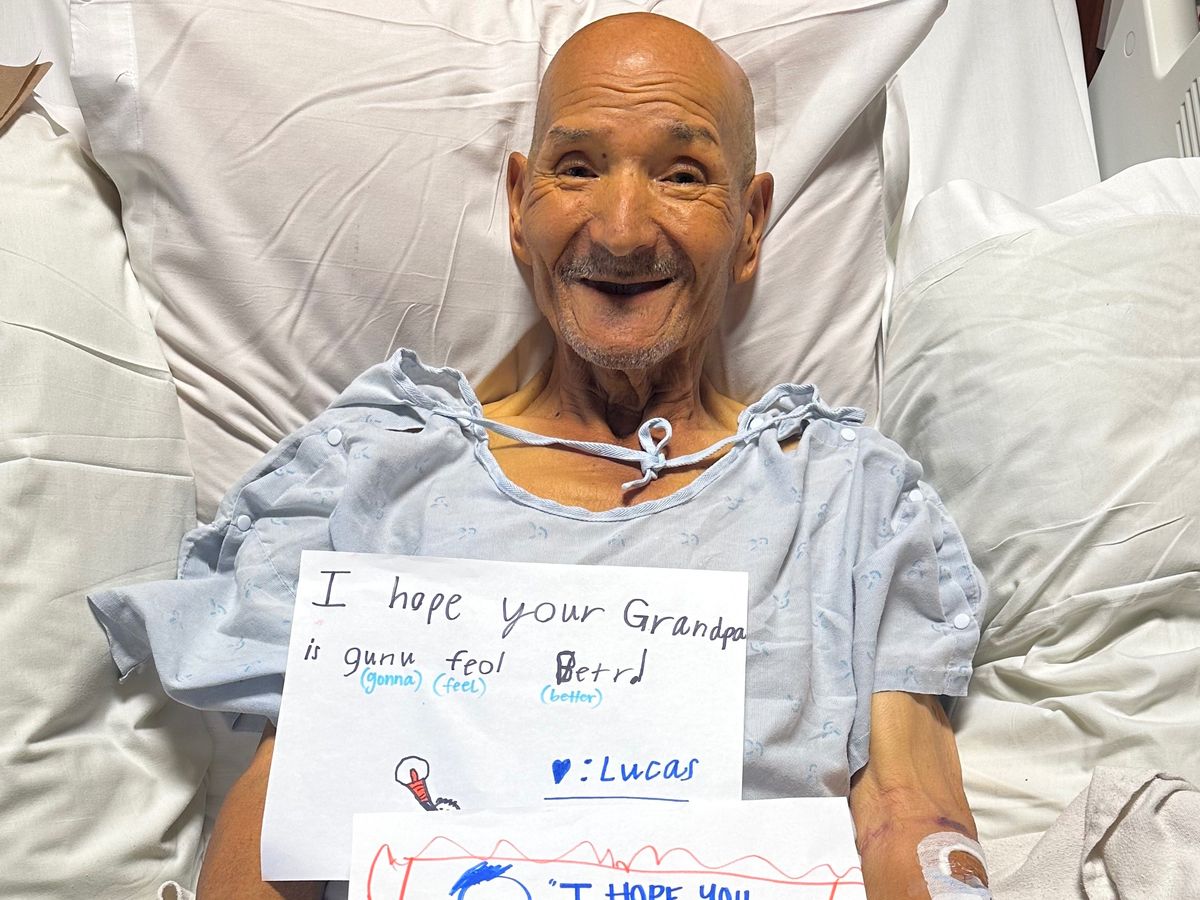 I hope your Grandpa
is gunu feol Betrd
(gonna) (feel) (better)
♥: Lucas
"I HOPE YOU